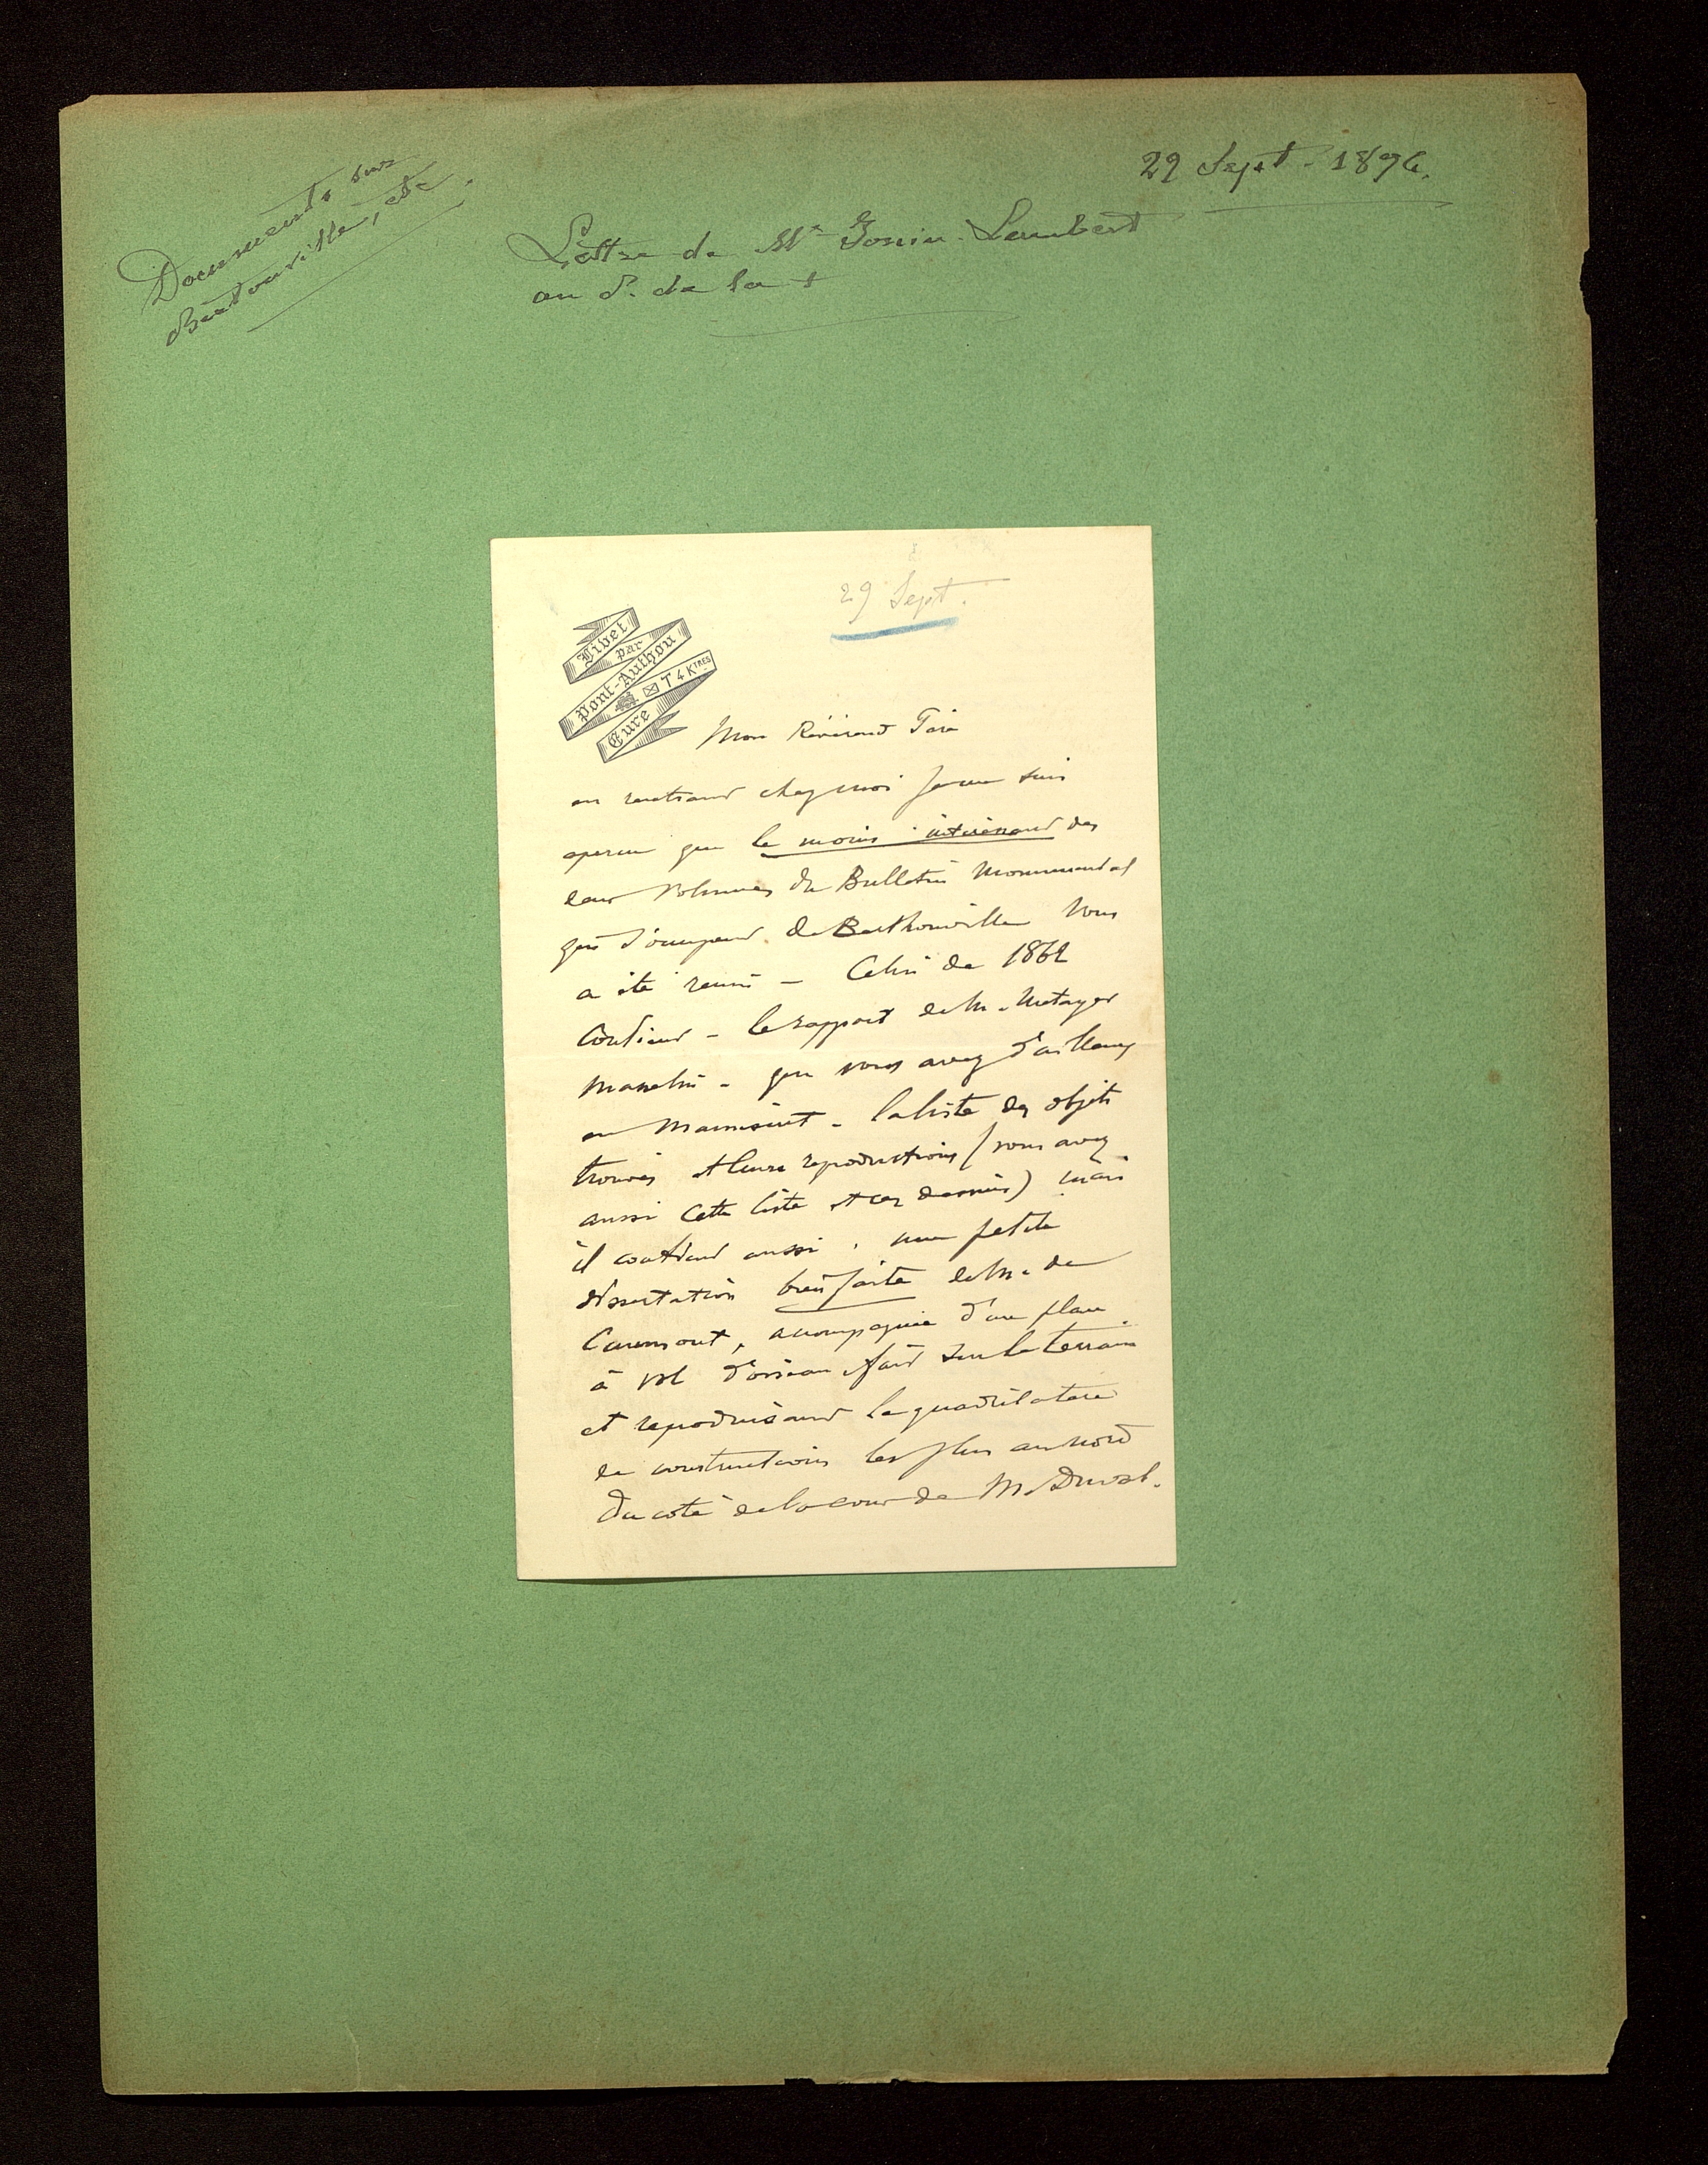 Documents sur
Berthouville, etc.
29 Sept. 1896.
Lettre de Mr Join-Lambert
au P. de la +
29 Sept.
Livet
par
Pont-Authou
T 4 KTRES
Eure
Mon Révérend Père
en rentrant chez moi je me suis
aperçu que le moins intéressant des
deux volumes du Bulletin Monumental
qui s'occupent de Berthouville vous
a été remis - Celui de 1862
contient - le rapport de M. Metayer
Masselin - que vous avez d'ailleurs
en manuscrit - la liste des objets
trouvés et leurs reproductions (vous avez
aussi cette liste et ces dessins) mais
il contient aussi, une petite
dissertation bien faite de M. de
Caumont, accompagnée d'un plan
à vol d'oiseau fait sur le terrain
et reproduisant le quadrilatère
de constructions les plus au nord
du coté de la cour de M. Duval.